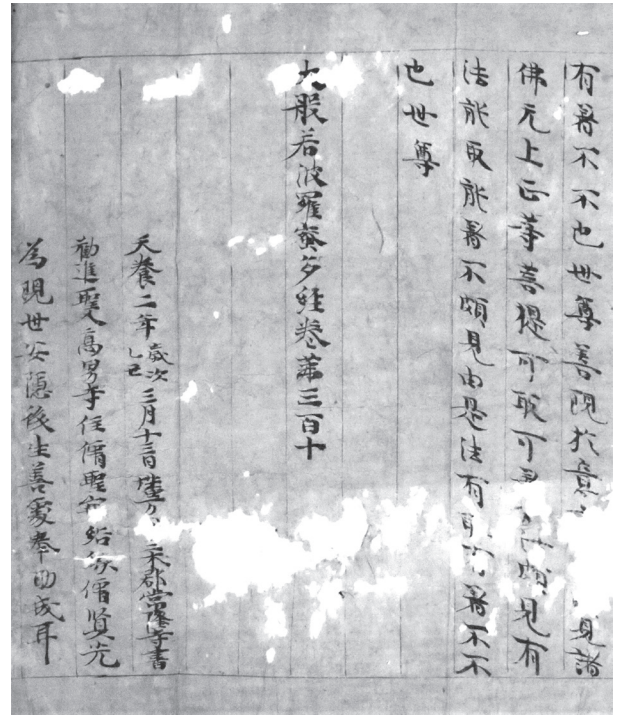 有著不不也世尊善現於意見諸
佛无上正等菩提可取可頗見有
法能取能著不頗見由是法有著不不
也世尊
大般若波羅蜜多經卷第三百十
天養二年歲次乙丑三月十三日郡常隆寺書
勸進聖人高男寺住僧聖結緣僧賢光
為現世安隱後生善處奉助成耳